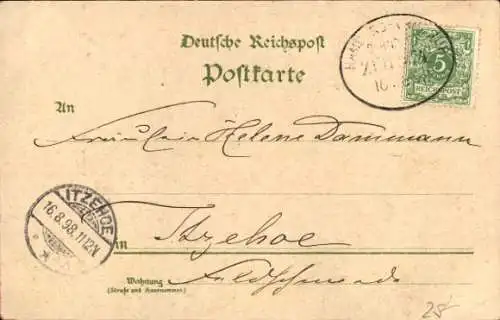 Deutsche Reichspost
Postkarte
5
REICHSPOST
16
An
Fräulein Helene Dammann
ITZEHOE
16.8.98.11-12V.
in Itzehoe
Wohnung
(Straße und Hausnummer)
25,-